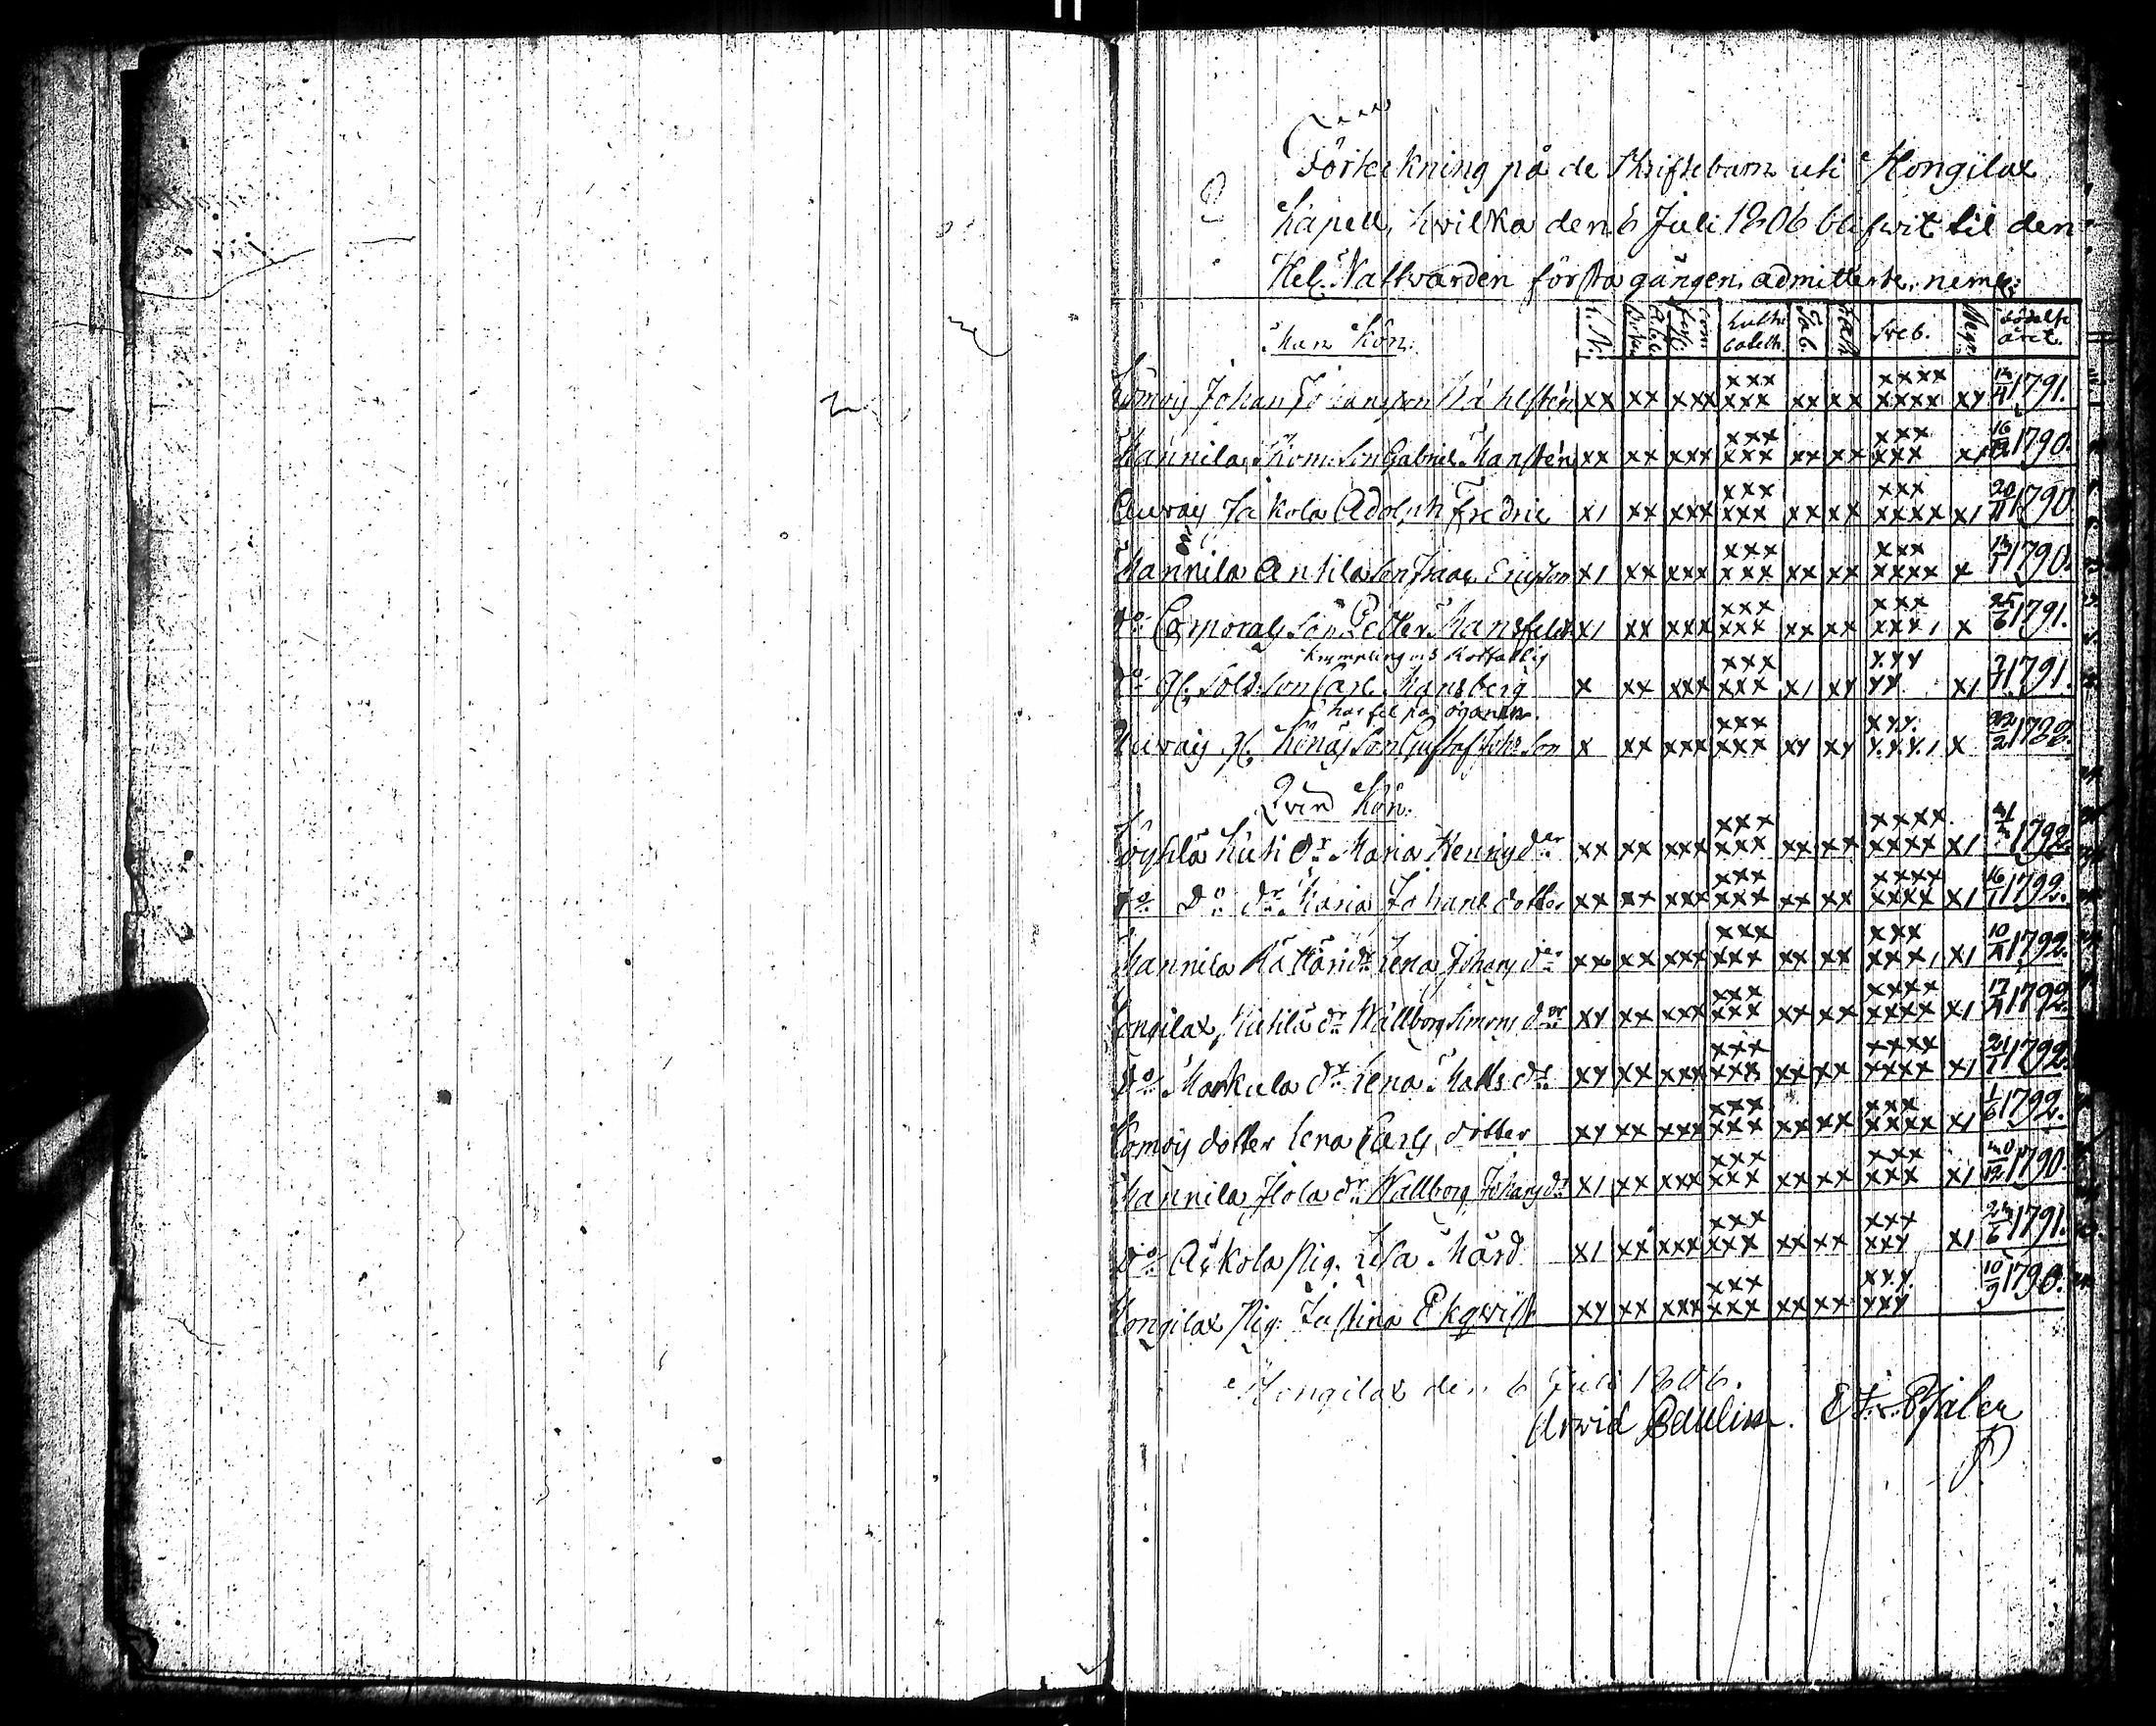 Förtekning på de Skriftebarn uti Kongilax
Kapell, hvilka den 6 Juli 1806 blifwit til den
Hel. Nattvarden första gången admitterte, neml:
Man Kön. Luth: Tab. Sveb. födelse året
Johan Johansson Ståhlstén xx xx xxx xxx xxx xx xx xxxx xxxx xx 1791.
Mannila Gabriel Manstén xx xx xxx xxx xxx xx xx xxx xxx x1 16/12 1790.
Auvais Jakola Adolph Fredric x1 xx xxx xxx xxx xx xx xxx xxxx x1 20/11 1790
Mannila Antila Son Isaac Ericson x1 xx xxx xxx xxx xx xx xxx xxxx x 1790.
Do Corporals Son Petter Mansfelt x1 xx xxx xxx xxx xx xx xxx xxx1 x 25/6 1791.
krympling
Do gl. Sold: Son Carl Mansberg x xx xxx xxx xxx x1 xx xxx xx x1 1791.
har fel på ögonen.
Auvais gl. Son Gustaf Joh: Son x xx xxx xxx xxx xx xx xxx xxx1 x 22/2 1788.
Qvin Kön.
dr Maria Henrics dr xx xx xxx xxx xxx xx xx xxxx xxxx x1 1792.
Do Do dr Maria Johans dotter xx xx xxx xxx xxx xx xx xxxx xxxx x1 16/1 1792.
Mannila dr Lena Johans dr xx xx xxx xxx xxx xx xx xxx xxx1 x1 10/4 1792.
Kongilax dr Wallborg Simons dr xx xx xxx xxx xxx xx xx xxxx xxxx x1 1792.
Do Markula dr Lena Matts dr xx xx xxx xxx xxx xx xx xxxx xxxx x1 21/1 1792.
dotter Lena Carls dotter xx xx xxx xxx xxx xx xx xxx xxxx x1 1/6 1792.
Mannila dr Wallborg Johans dr x1 xx xxx xxx xxx xx xx xxx xxx x1 30/12 1790.
Do Pig. Lisa Mård x1 xx xxx xxx xxx xx xx xxx xxx x1 1791.
Kongilax Pig. Justina Ekqwist xx xx xxx xxx xxx xx xx xxx xxx 10/9 1790.
Kongilax den 6 Juli 1806.
Arvid Paulin.